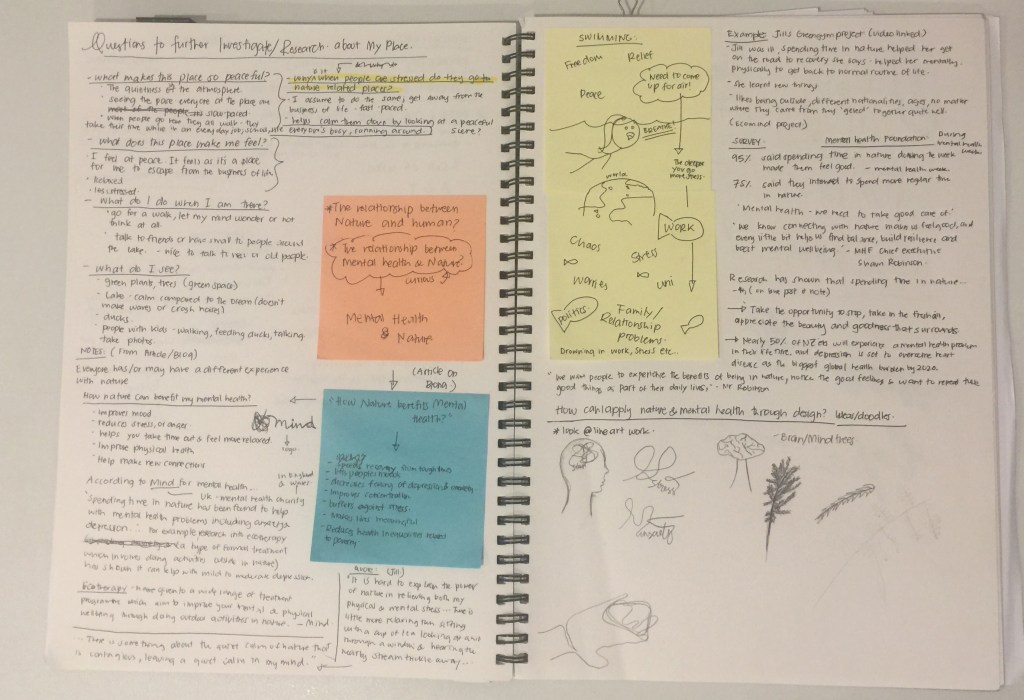 Questions to further Investigate/Research about My Place.
- what makes this place so peaceful?
· The quietness of the atmosphere
seeing the pace everyone at the place are
slow-paced
· when people go here they all walk - they
take their time while in an everyday job, school, life everyone's busy, running around.
- what does this place make me feel?
· I feel at peace. It feels as it's a place
for me to escape from the busyness of life
· Relaxed
· less stressed
- what do I do when I am there?
· go for a walk, let my mind wonder or not
think at all.
· talk to friends or have small to people around
the lake. - nice to talk to new or old people.
- what do I see?
· green plants, trees (green space)
· Lake - calm compared to the ocean (doesn't
make waves or crash noises)
· ducks
· people with kids - walking, feeding ducks, talking,
take photos.
- why/when people are stressed do they go to
nature related places?
· I assume to do the same, get away from the
busyness of life - fast paced.
· helps calm them down by looking at a peaceful
scene?
NOTES: (From Article/Blog)
Everyone has/or may have a different experience
with nature
How nature can benefit my mental health?
· Improves mood
· reduces stress, or anger
· helps you take time out & feel more relaxed
· Improve physical health
· Help make new connections
mind
logo
According to Mind for mental health...
UK - mental health charity
in England & Wales
"Spending time in nature has been found to help
with mental health problems including anxiety &
depression. ∴ for example research into ecotherapy
(a type of formal treatment
which involves doing activities outside in nature)
has shown it can help with mild to moderate depression.
Ecotherapy - name given to a wide range of treatment
programmes which aim to improve your mental & physical
wellbeing through doing outdoor activities in nature. - Mind
"There is something about the quiet calm of nature that
is contagious, leaving a quiet calm in my mind."
* The relationship between
Nature and human?
* The relationship between
Mental health & Nature?
Mental Health
&
Nature
(Article on
Blog)
"How Nature benefits Mental
health?"
- speeds recovery from
- lifts people's moods
- decreases feeling of depression & anxiety
- improves concentration
- buffers against stress
- makes lives meaningful
- Reduces health inequalities related
to poverty
Quote: (Jill)
"It is hard to explain the power
of nature in relieving both my
physical or mental stress - There is
little more relaxing than sitting
with a cup of tea looking at a
through a window & hearing the
nearby stream trickle away...
SWIMMING:
Freedom
Relief
Peace
Need to come
up for air!
BREATHE
The deeper
you go
more stress
world
WORK
Chaos
Stress
Worries
uni
politics
Family/
Relationship
problems
Drowning in work, stress etc...
Example: Jill's project (video linked)
· Jill was ill, spending time in nature helped her get
on the road to recovery she says - helped her mentally,
physically to get back to normal routine of life.
· she learnt new things
· likes being outside, different nationalities, ages, no matter
where they came from they "gelled" together quite well.
(Ecomind project)
SURVEY:
Mental health Foundation:
During mental health week
95% said spending time in nature during the week
made them feel good. - mental health week
75% said they intended to spend more regular time
in nature.
"Mental health - we need to take good care of."
"We know connecting with nature make us feel good, and
every little bit helps us find balance, build resilience and
boost mental wellbeing." - MHF Chief executive
Shaun Robinson.
Research has shown that spending time in nature...
→ Take the opportunity to stop, take in the fresh air,
appreciate the beauty and goodness that surrounds.
→ Nearly 50% of NZers will experience a mental health problem
in their lifetime, and depression is set to overcome heart
disease as the biggest global health burden by 2020.
"We want people to experience the benefits of being in nature, notice the good feelings & want to repeat these
good things as part of their daily lives." - Mr Robinson
How can I apply nature & mental health through design? Ideas/doodles.
* look @ line art work.
Stress
anxiety
- Brain/Mind trees